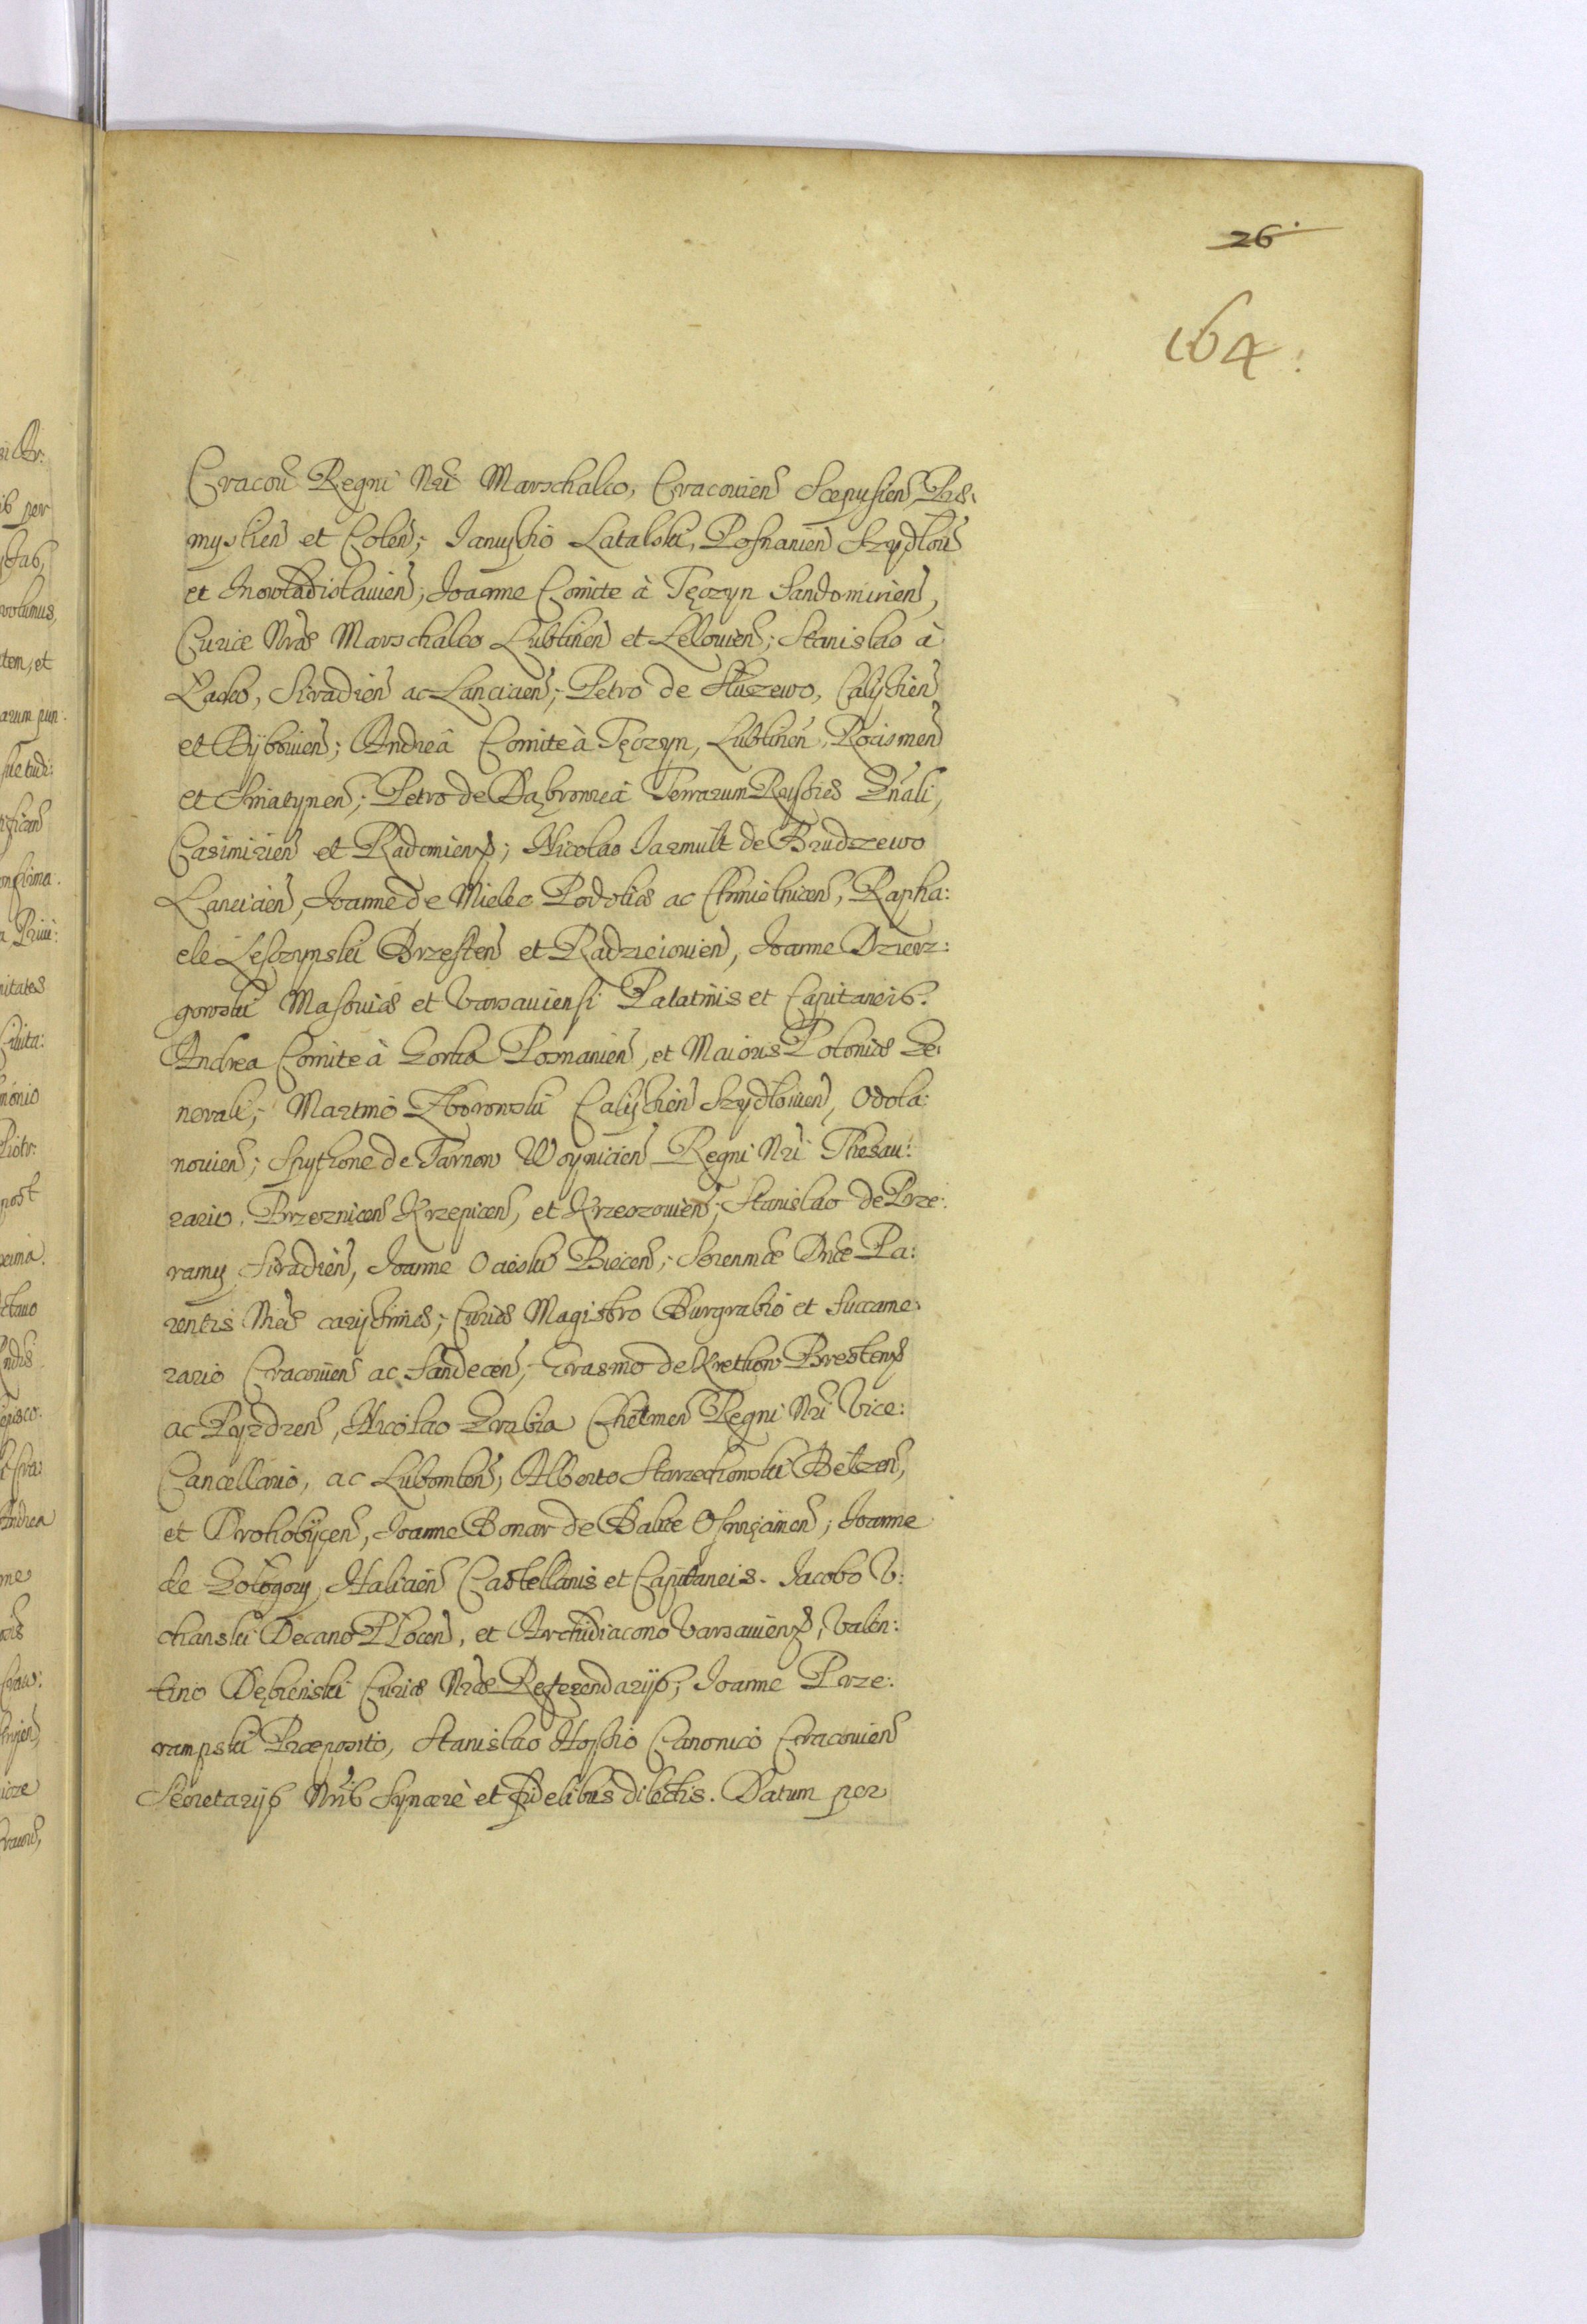 26.
164.
Cracou Regni Nri Marschalco, Cracouien Scepusien Præ:
myslien et Colen; Janussio Latalski, Posnanien Szydlou
et Jnowladislauien; Joanne Comite à Tęczyn Sandomirien,
Curiæ Nræ Marschalco Lublinen et Lelouien; Stanislao à
Lasko, Siradien ac Lancicien; Petro de Służewo, Calissien
et Dybouien; Andreâ Comite à Tęczyn, Lublinen, Rocismen
et Sniatynen; Petro de Dąbrowicâ Terrarum Russiæ Gnali,
Casimirien et Radomien; Nicolao Jarmult de Brudzewo
Lancicien, Joanne de Mielec Podoliæ ac Chmielnicen, Rapha:
ele Lesczynski Brzesten et Radzieiouien, Joanne Dzierz:
gowski Masouiæ et Varsauiensi Palatinis et Capitaneis.
Andrea Comite à Gorka Posnanien, et Maioris Poloniæ Ge:
nerali; Martino Zborowski Calissien Szydlouien, Odola:
nouien; Spythone de Tarnow Woynicien Regni Nri Thesau:
rario, Brzeznicen Krzepicen, et Krzeczouien; Stanislao de Prze:
ramy Siradien, Joanne Ocieski Biecen; Serenmæ Dnæ Pa:
rentis Nræ carissimæ; Curiæ Magistro Burgrabio et Succame:
rario Cracouien ac Sandecen; Erasmo de Krethow Bresten
ac Pyzdren, Nicolao Grabia Chelmen Regni Nri Vice:
Cancellario, ac Lubomlen; Alberto Starzechowski Belzen,
et Drohobÿcen, Joanne Bonar de Balice Osvięcimen; Joanne
de Gologory Halicien Castellanis et Capitaneis. Jacobo V:
chanski Decano Plocen, et Archidiacono Varsauien, Valen:
tino Dębienski Curiæ Nræ Referendarijs; Joanne Prze:
rampski Præposito, Stanislao Hossio Canonico Cracouien
Secretarijs Nris Syncerè et Fidelibus dilectis. Datum per